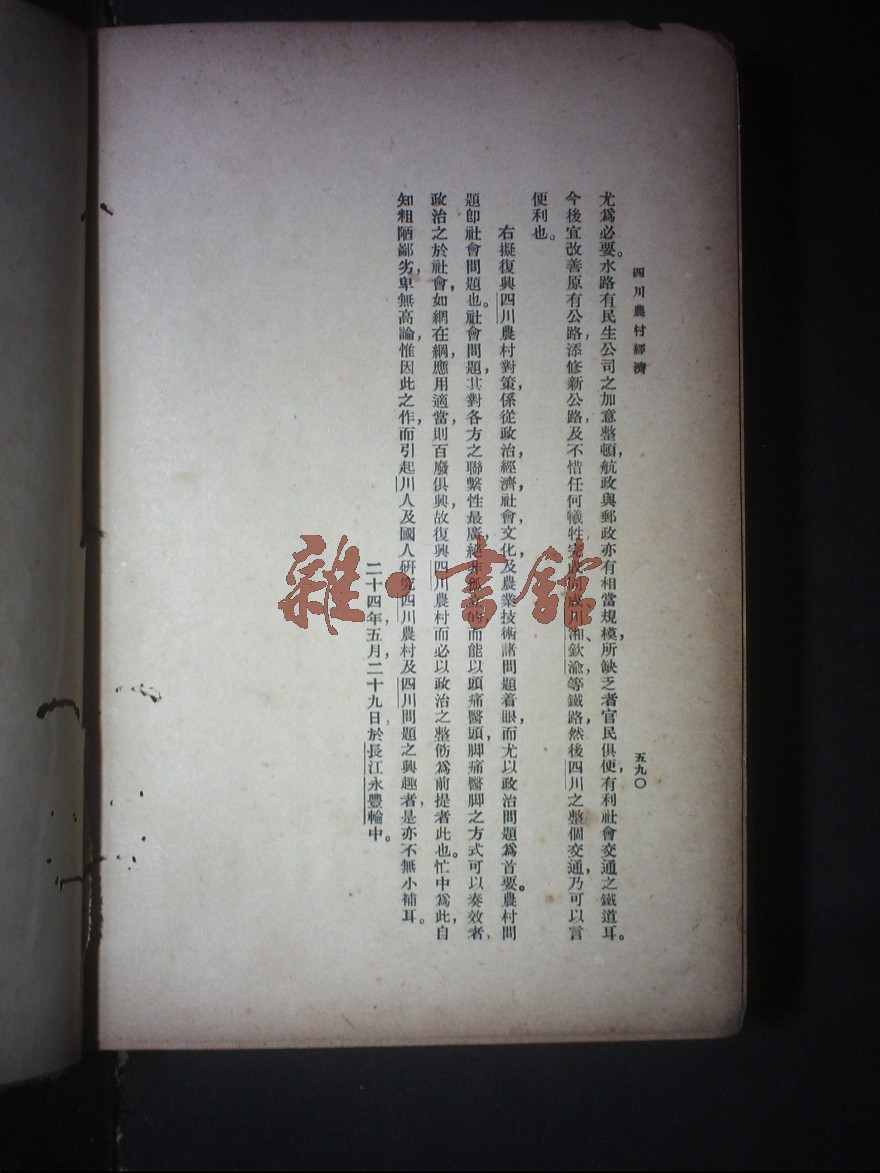 四川農村經濟
五九〇
尤爲必要。水路有民生公司之加意整頓，航政與郵政亦有相當規模，所缺乏者官民俱便，有利社會交通之鐵道耳。
今後宜改善原有公路，添修新公路，及不惜任何犧牲完成川湘、欽渝，等鐵路，然後四川之整個交通，乃可以言
便利也。
右擬復興四川農村對策，係從政治，經濟，社會，文化，及農業技術諸問題着眼，而尤以政治問題爲首要。農村問
題卽社會問題也。社會問題，其對各方之聯繫性最廣，絕非的，而能以頭痛醫頭，脚痛醫脚之方式可以奏效者，
政治之於社會，如網在綱，應用適當，則百廢俱興，故復興四川農村而必以政治之整飭爲前提者此也。忙中爲此，自
知粗陋鄙劣，卑無高論，惟因此之作，而引起川人及國人研究四川農村及四川問題之興趣者，是亦不無小補耳。
二十四年，五月，二十九日於長江永豐輪中。
雜·書館